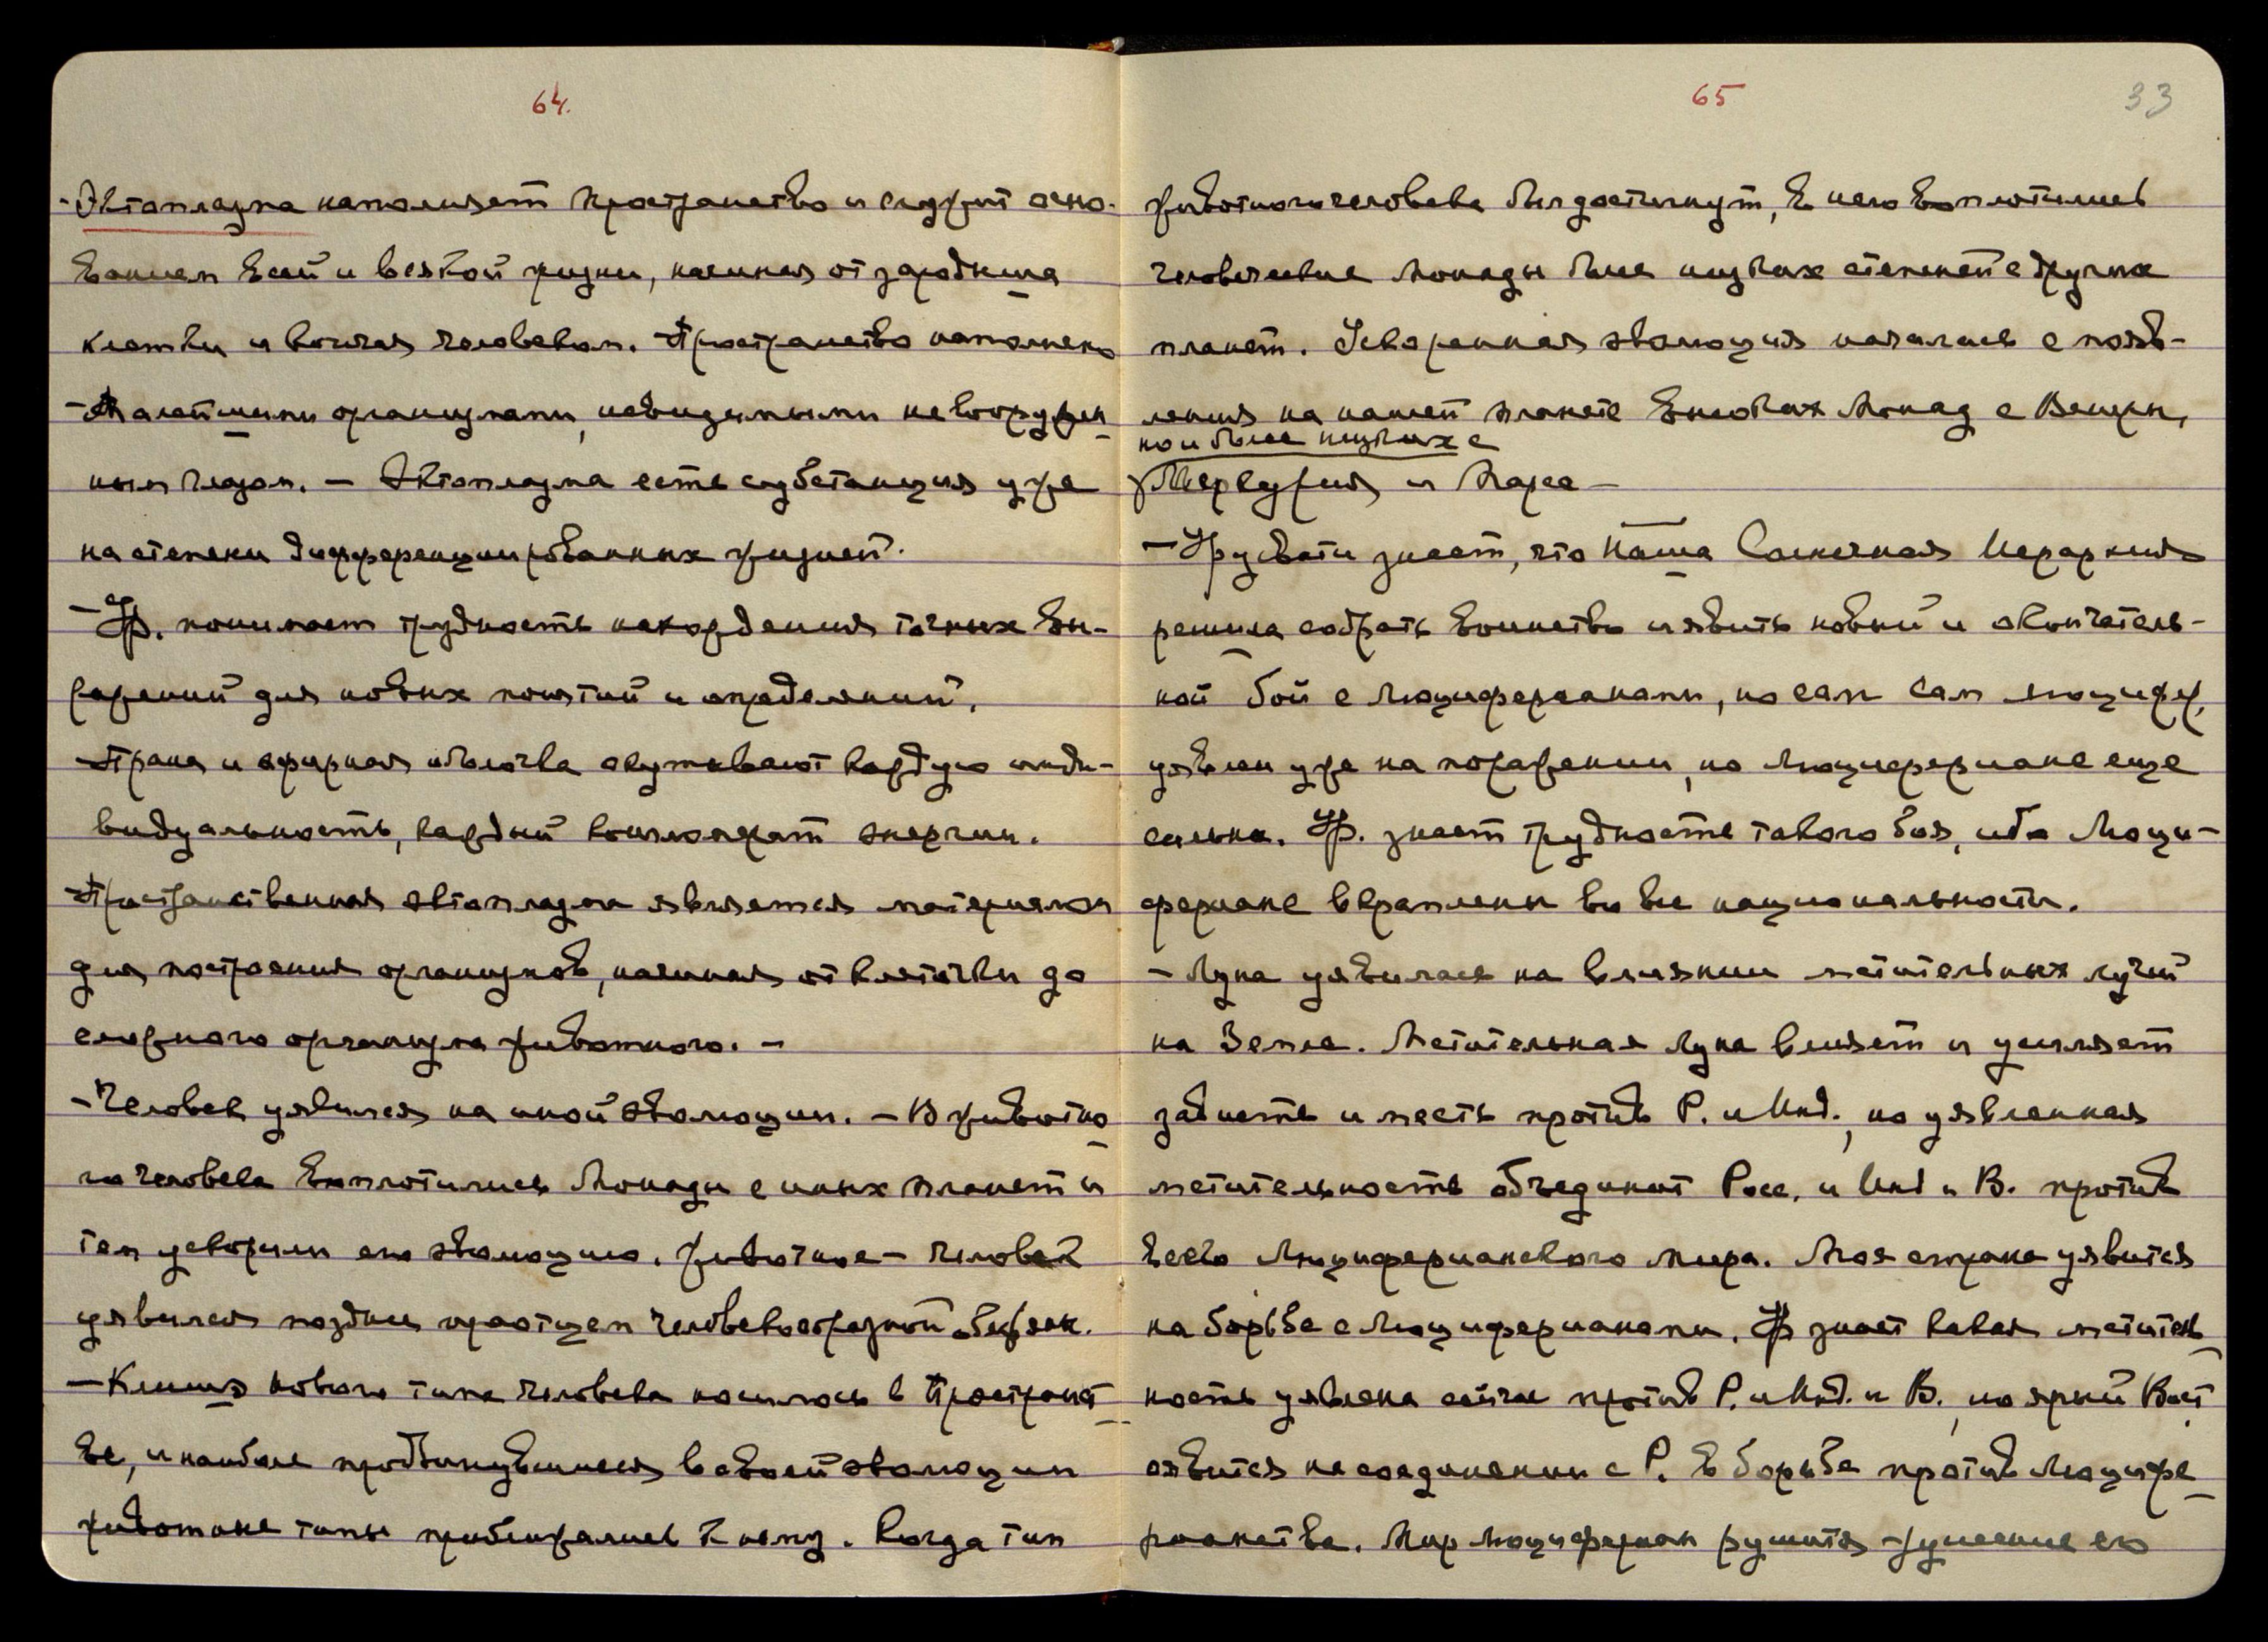 64.
- Эктоплазма наполняет пространство и служит осно-
ванием всей и всякой жизни, начиная от зародыша
клетки и кончая человеком. Пространство наполнено
- Малейшими организмами, невидимыми невооружен
ным глазом. — Эктоплазма есть субстанция уже
на степени дифференцированных жизней.
- Ур. понимает трудность нахождения точных вы-
ражений для новых понятий и определений.
- Прана и эфирная оболочка окутывают каждую инди-
видуальность, каждый конгломерат энергии.
- Пространственная эктоплазма является материалом
для построения организмов, начиная от клеточки до
сложного организма животного. -
- Человек уявился на иной эволюции. - В животно
го человека воплотились Монады с иных планет и
тем ускорили его эволюцию. Животное - человек
уявился поздним праотцем человекообразной обезьян.
- Клише нового типа человека носилось в Пространст
ве, и наиболее продвинувшиеся в своей эволюции
животные типы приближались к нему. Когда тип
65
33
животного человека был достигнут, в него воплотились
человеческие Монады более низких степеней с других
планет. Ускоренная эволюция началась с появ-
ления на нашей планете высоких Монад с Венеры,
но и более низких с
Меркурия и Марса —
- Урусвати знает, что Наша Солнечная Иерархия
решила собрать воинство и явить новый и окончатель-
ный бой с Люциферианами, но сам сам люцифер.
уявлен уже на поражении, но Люцифериане еще
сильны. Ур. знает трудность такого боя, ибо Люци-
фериане вкраплены во все национальности.
- Луна уявилась на влиянии мстительных лучей
на Земле. Мстительная Луна влияет и усиляет
зависть и месть против Р. и Инд., но уявленная
мстительность объединит Росс. и Инд и В. против
всего Люциферианского мира. Моя страна уявится
на борьбе с Люциферианами. Ур знает какая мститель
ность уявлена сейчас против Р. и Инд. и В., но ярый Вост
оявится на соединении с Р. в борьбе против Люцифе
рианства. Мир Люцифериан рушится - рушение его